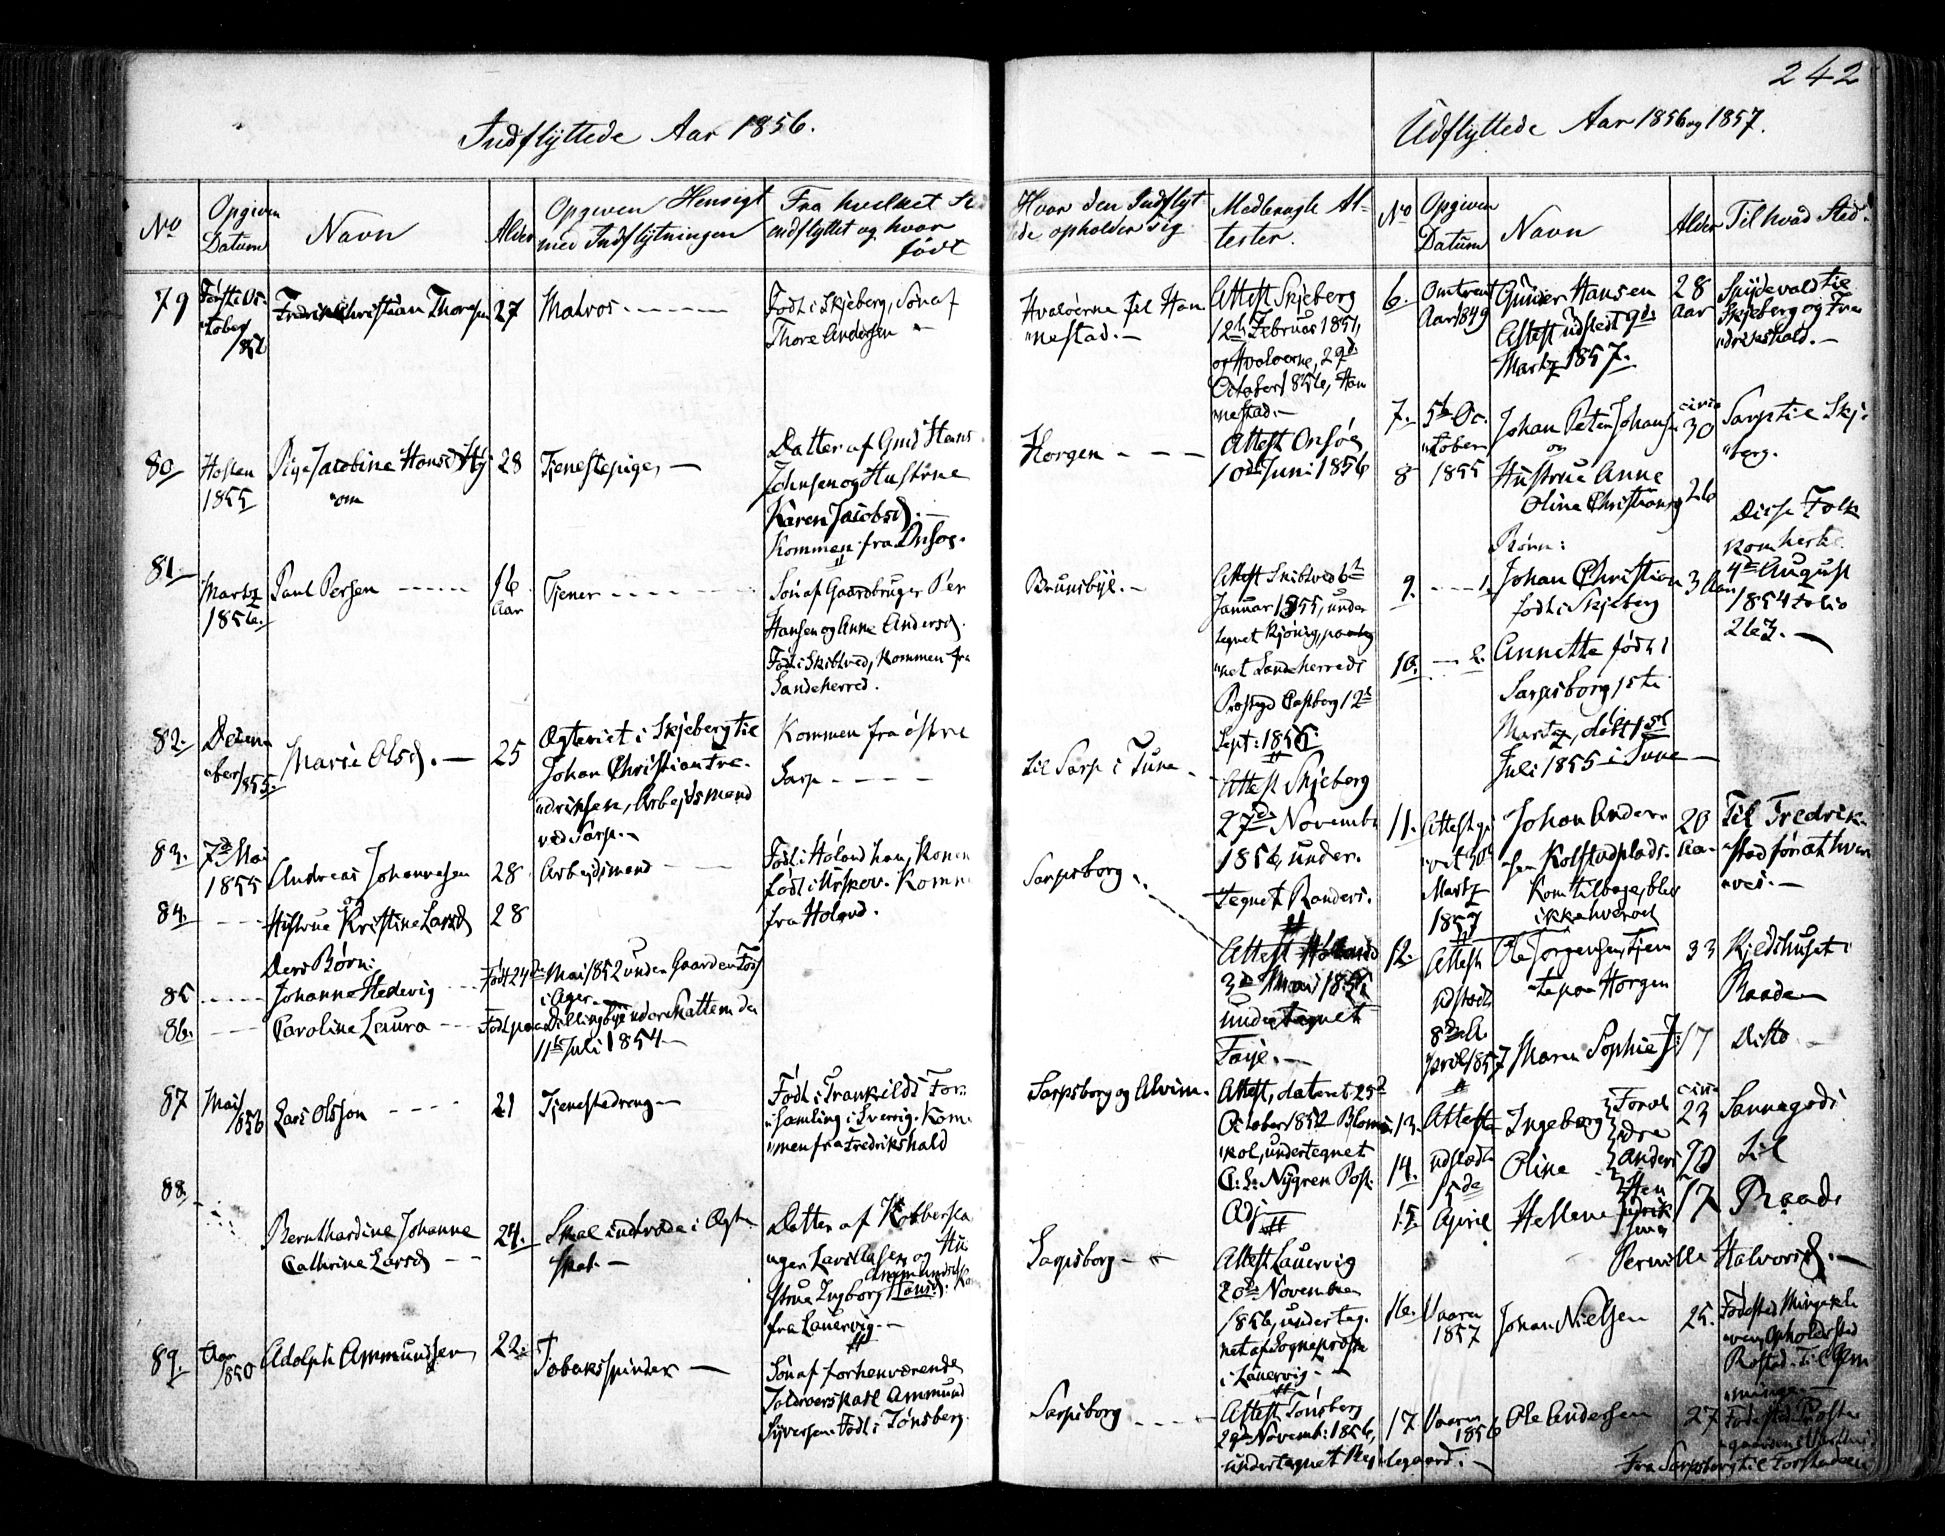 242
Indflyttede Aar 1856.
No
Opgiven
Datum
Navn
Alder
Opgiven Hensigt
med Indflytningen
Fra hvilket Sted
indflyttet og hvor
født
Hvor den Indflyt
de opholder sig
Medbragte At-
tester.
79
Første Oc-
tober
Fredrik Christian Thoresen
27
Matros
Født i Skjeberg, Søn af
Thore Andersen
Hvaløerne til Han
nestad.
Attest Skjeberg
12te Februar 1851,
og Hvaløerne, 29de
October 1856, Han
nestad.
80
Hosten
1855
Pige Jacobine Hansd
28
Tjenestepige,
Datter af
Johnsen og Hustrue
Karen Jacobsd.
Kommen fra Onsøe.
Horgen
Attest Onsøe
10de Juni 1856
81.
Martz
1856.
Paul Persen
16
Aar
Tjener
Søn af Gaardbruger Per
Hansen og Anne Andersd.
Født i Skibtved, kommen fra
Sandeherred.
Brunsbye.
Attest Skibtved 6te
Januar 1855, under
tegnet
net Sandeherreds
Sept: 1856
82.
Decem
ber 1855.
Marie Olsd.
25
Ægteviet i Skjeberg til
Johan Christian Fre-
driksen, Arbejdsmand
ved Sarp.
Kommen fra østre
Sarp
til Sarp i Tune
Attest Skjeberg
27de Novembr
1856, under-
tegnet Randers.
83.
7de Mai
1855
Andreas Johannesen
28
Arbejdsmand
Født i Høland han, Konen
født i Urskov. Komne
fra Høland.
Sarpsborg
84.
Hustrue Kristine Larsd
28
Attest Høland
3de
undertegnet
Faye.
Ders Børn:
85
Johanne Hedevig
Født 24de Mai 1852 under Gaarden
i Ager
86.
Caroline Laura
Født paa
11te Juli 1854
87
Mai
1856
Lars Olsson
21
Tjenestedreng
Født i Trankilds For-
samling i Sverrig. Kom-
men fra Fredrikshald
Sarpsborg og Alvim.
Attest, dateret 25de
October 1852
undertegnet
Nygren Past.
Adj
88.
Bernthardine Johanne
Cathrine Larsd
24.
Skal indtræde i Ægte
skab.
Datter af
ger Lars Clasen og Hu
strue Ingborg
fra Laurvig.
Sarpsborg
Attest Laurvig
20de November
1856, underteg.
net af Sogneprost
i Laurvig.
89.
Aar
1850
Adolph Ammundsen
22.
Tobaksspinder
Søn af forhenværende
Ammund
Syversen. Født i Tønsberg.
Sarpsborg
Attest Tønsberg
29de Novemb: 1856,
undertegnet
Udflyttede Aar 1856 og 1857.
No
Opgiven
Datum
Navn
Alder
Til hvad Sted.
6.
Omtrent
Aar 1849
Gunder Hansen
Attest udstedt 9de
Martz 1857.
28
Aar
Spydevold til
Skjeberg og Fre
drikshald.
7.
5te Oc-
tober
1855
Johan Peter Johansen
og
circa
30
Sarp til Skje
berg.
8
Hustrue Anne
Oline Christiansd
26
Børn:
Disse Folk
kom her
4de August
1854 folio
263.
9.
1.
Johan Christian
født i Skjeberg
3 Aar
10.
2.
Annette født i
Sarpsborg 1ste
Martz, døbt 1ste
Juli 1855 i Tune
11.
Attest gi
vet 30te
Martz
1857
Johan Ander-
sen Kolstadplads.
Kom tilbage, blev
ikke hvervet
20
Aar
Til Fredrik-
stad for at hver
ves.
12.
Attest
udstedt
8de
April 1857
Ole Jørgensen, Tjen
te paa Horgen
33
Kjeldshuset i
Raade
Maren Sophie
17
Ditto
13.
Attest
udstedt
5de
April
Ingeborg
circa
23
Sannegods
til
Raade
14.
Oline
Anders
20
15.
Hellene
17
Pernille Halvorsd.
16.
Vaaren
1857
Johan Nielsen
25.
Fødested
Opholdssted
17.
Vaaren
1856
Ole Andersen
27
Fødested
Fra Sarpsborg til